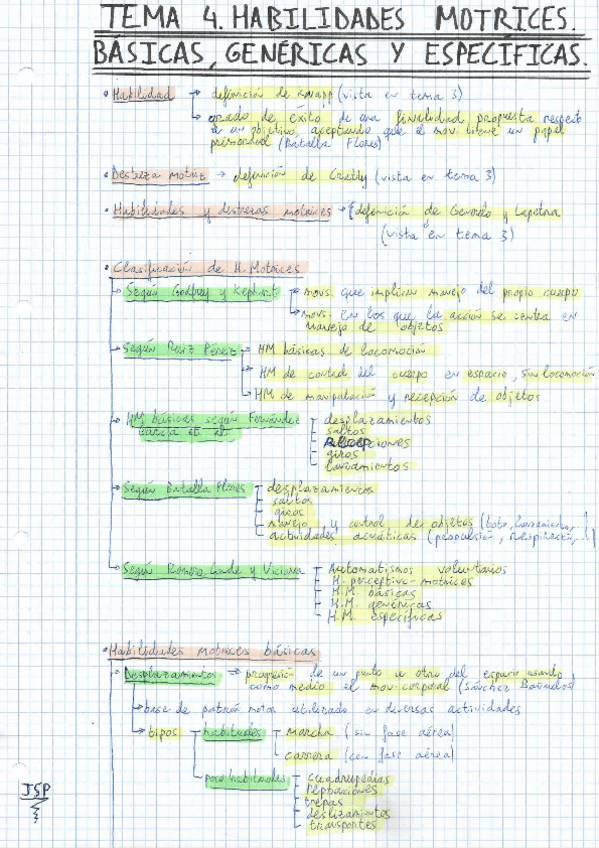 TEMA 4. HABILIDADES MOTRICES.
BÁSICAS, GENÉRICAS Y ESPECÍFICAS.
• Habilidad → definición de Knapp (vista en tema 3)
→ grado de éxito de una finalidad propuesta respecto
a un objetivo, aceptando que el mov. tiene un papel
primordial (Batalla Flores)
• Destreza motriz → definición de (vista en tema 3)
• Habilidades y destrezas motrices → definición de y
(vista en tema 3)
• Clasificación de H. Motrices
→ Según Godfrey y Kephart → movs. que implican manejo del propio cuerpo
→ movs. en los que la acción se centra en
manejo de objetos
→ Según Ruiz Pérez → HM básicas de locomoción
HM de control del cuerpo en espacio, sin locomoción
HM de manipulación y recepción de objetos
→ HM básicas según Fernández desplazamientos
García et al. saltos
giros
lanzamientos
→ Según Batalla Flores desplazamientos
saltos
giros
manejo y control de objetos (bote, lanzamientos,
actividades acuáticas (propulsión, respiración,
→ Según Romero Cinde y Viciana Automatismos voluntarios
H. perceptivo-motrices
H.M. básicas
H.M. genéricas
H.M. específicas
• Habilidades motrices básicas
→ Desplazamientos → progresión de un punto a otro del espacio usando
como medio el mov. corporal (Sánchez Bañuelos)
→ base de patrón motor utilizado en diversas actividades
→ tipos habituales marcha (sin fase aérea)
carrera (con fase aérea)
poco habituales cuadrupedias
reptaciones
trepas
deslizamientos
transportes
JSP